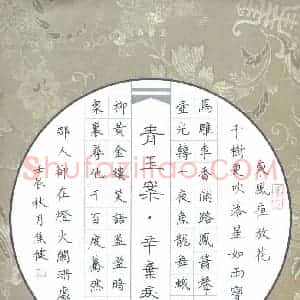 東風夜放花
千樹更吹落星如雨寶
馬雕車香滿路鳳簫聲
壺光轉一夜魚龍舞蛾
青玉案·辛棄疾
柳黃金縷笑語盈盈暗
衆裏尋他千百度驀然
那人却在燈火闌珊處
辰秋月焦健
Shufaziliao.com